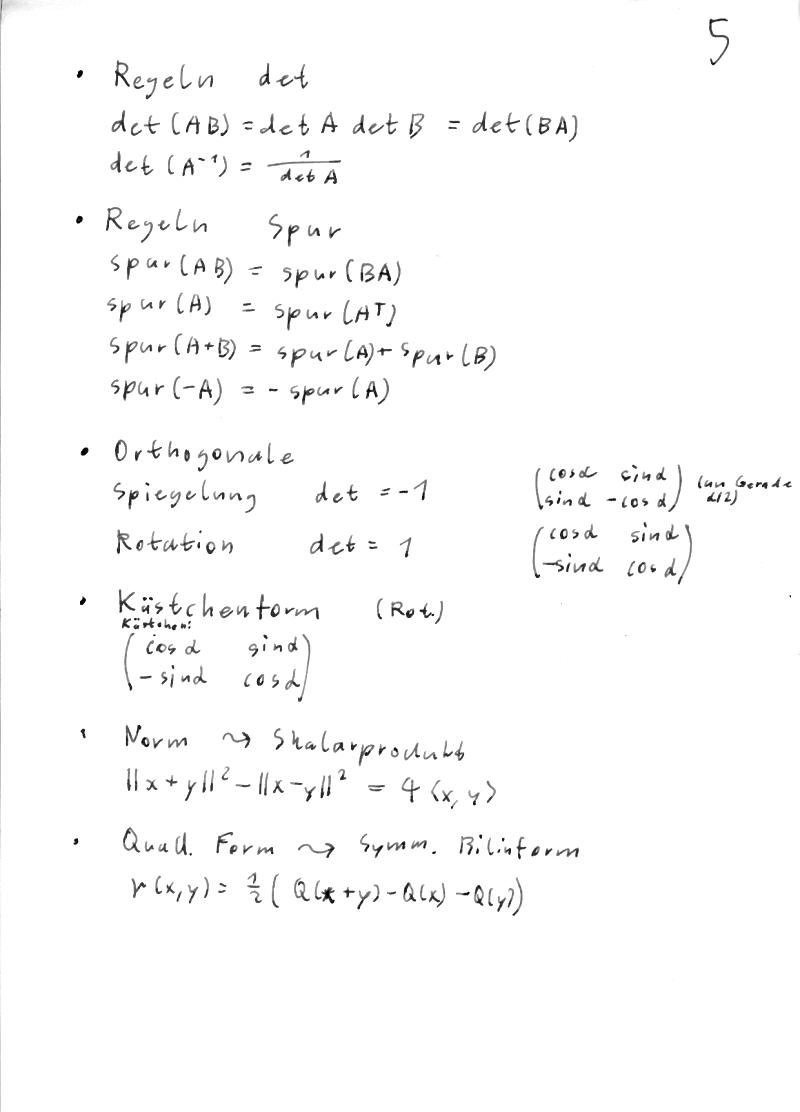 5
• Regeln det
det (AB) = det A det B = det (BA)
det (A⁻¹) = 1/det A
• Regeln Spur
spur (AB) = spur (BA)
spur (A) = spur (Aᵀ)
spur (A+B) = spur (A) + spur (B)
spur (-A) = - spur (A)
• Orthogonale
Spiegelung det = -1 (cos α sin α
sin α -cos α) (an Gerade
α/2)
Rotation det = 1 (cos α sin α
-sin α cos α)
• Kästchenform (Rot.)
Kästchen:
(cos α sin α
- sin α cos α)
• Norm ⇝ Skalarprodukt
||x + y||² - ||x - y||² = 4 ⟨x, y⟩
• Quad. Form ⇝ Symm. Bilinform
γ (x, y) = 1/2 ( Q(x + y) - Q(x) - Q(y))